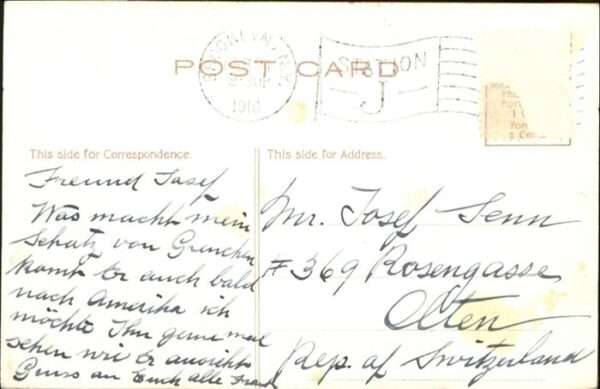 BROOKLYN, N.Y.
1910
STATION
J
POST CARD
This side for Correspondence.
This side for Address.
Freund Josef
Was macht mein
Schatz von Grenchen
kommt Er auch bald
nach Amerika ich
möchte Ihn gerne mal
sehen wie Er aussieht
Gruss an Euch alle
Mr. Josef Senn
# 369 Rosengasse
Olten
Rep. of Switzerland